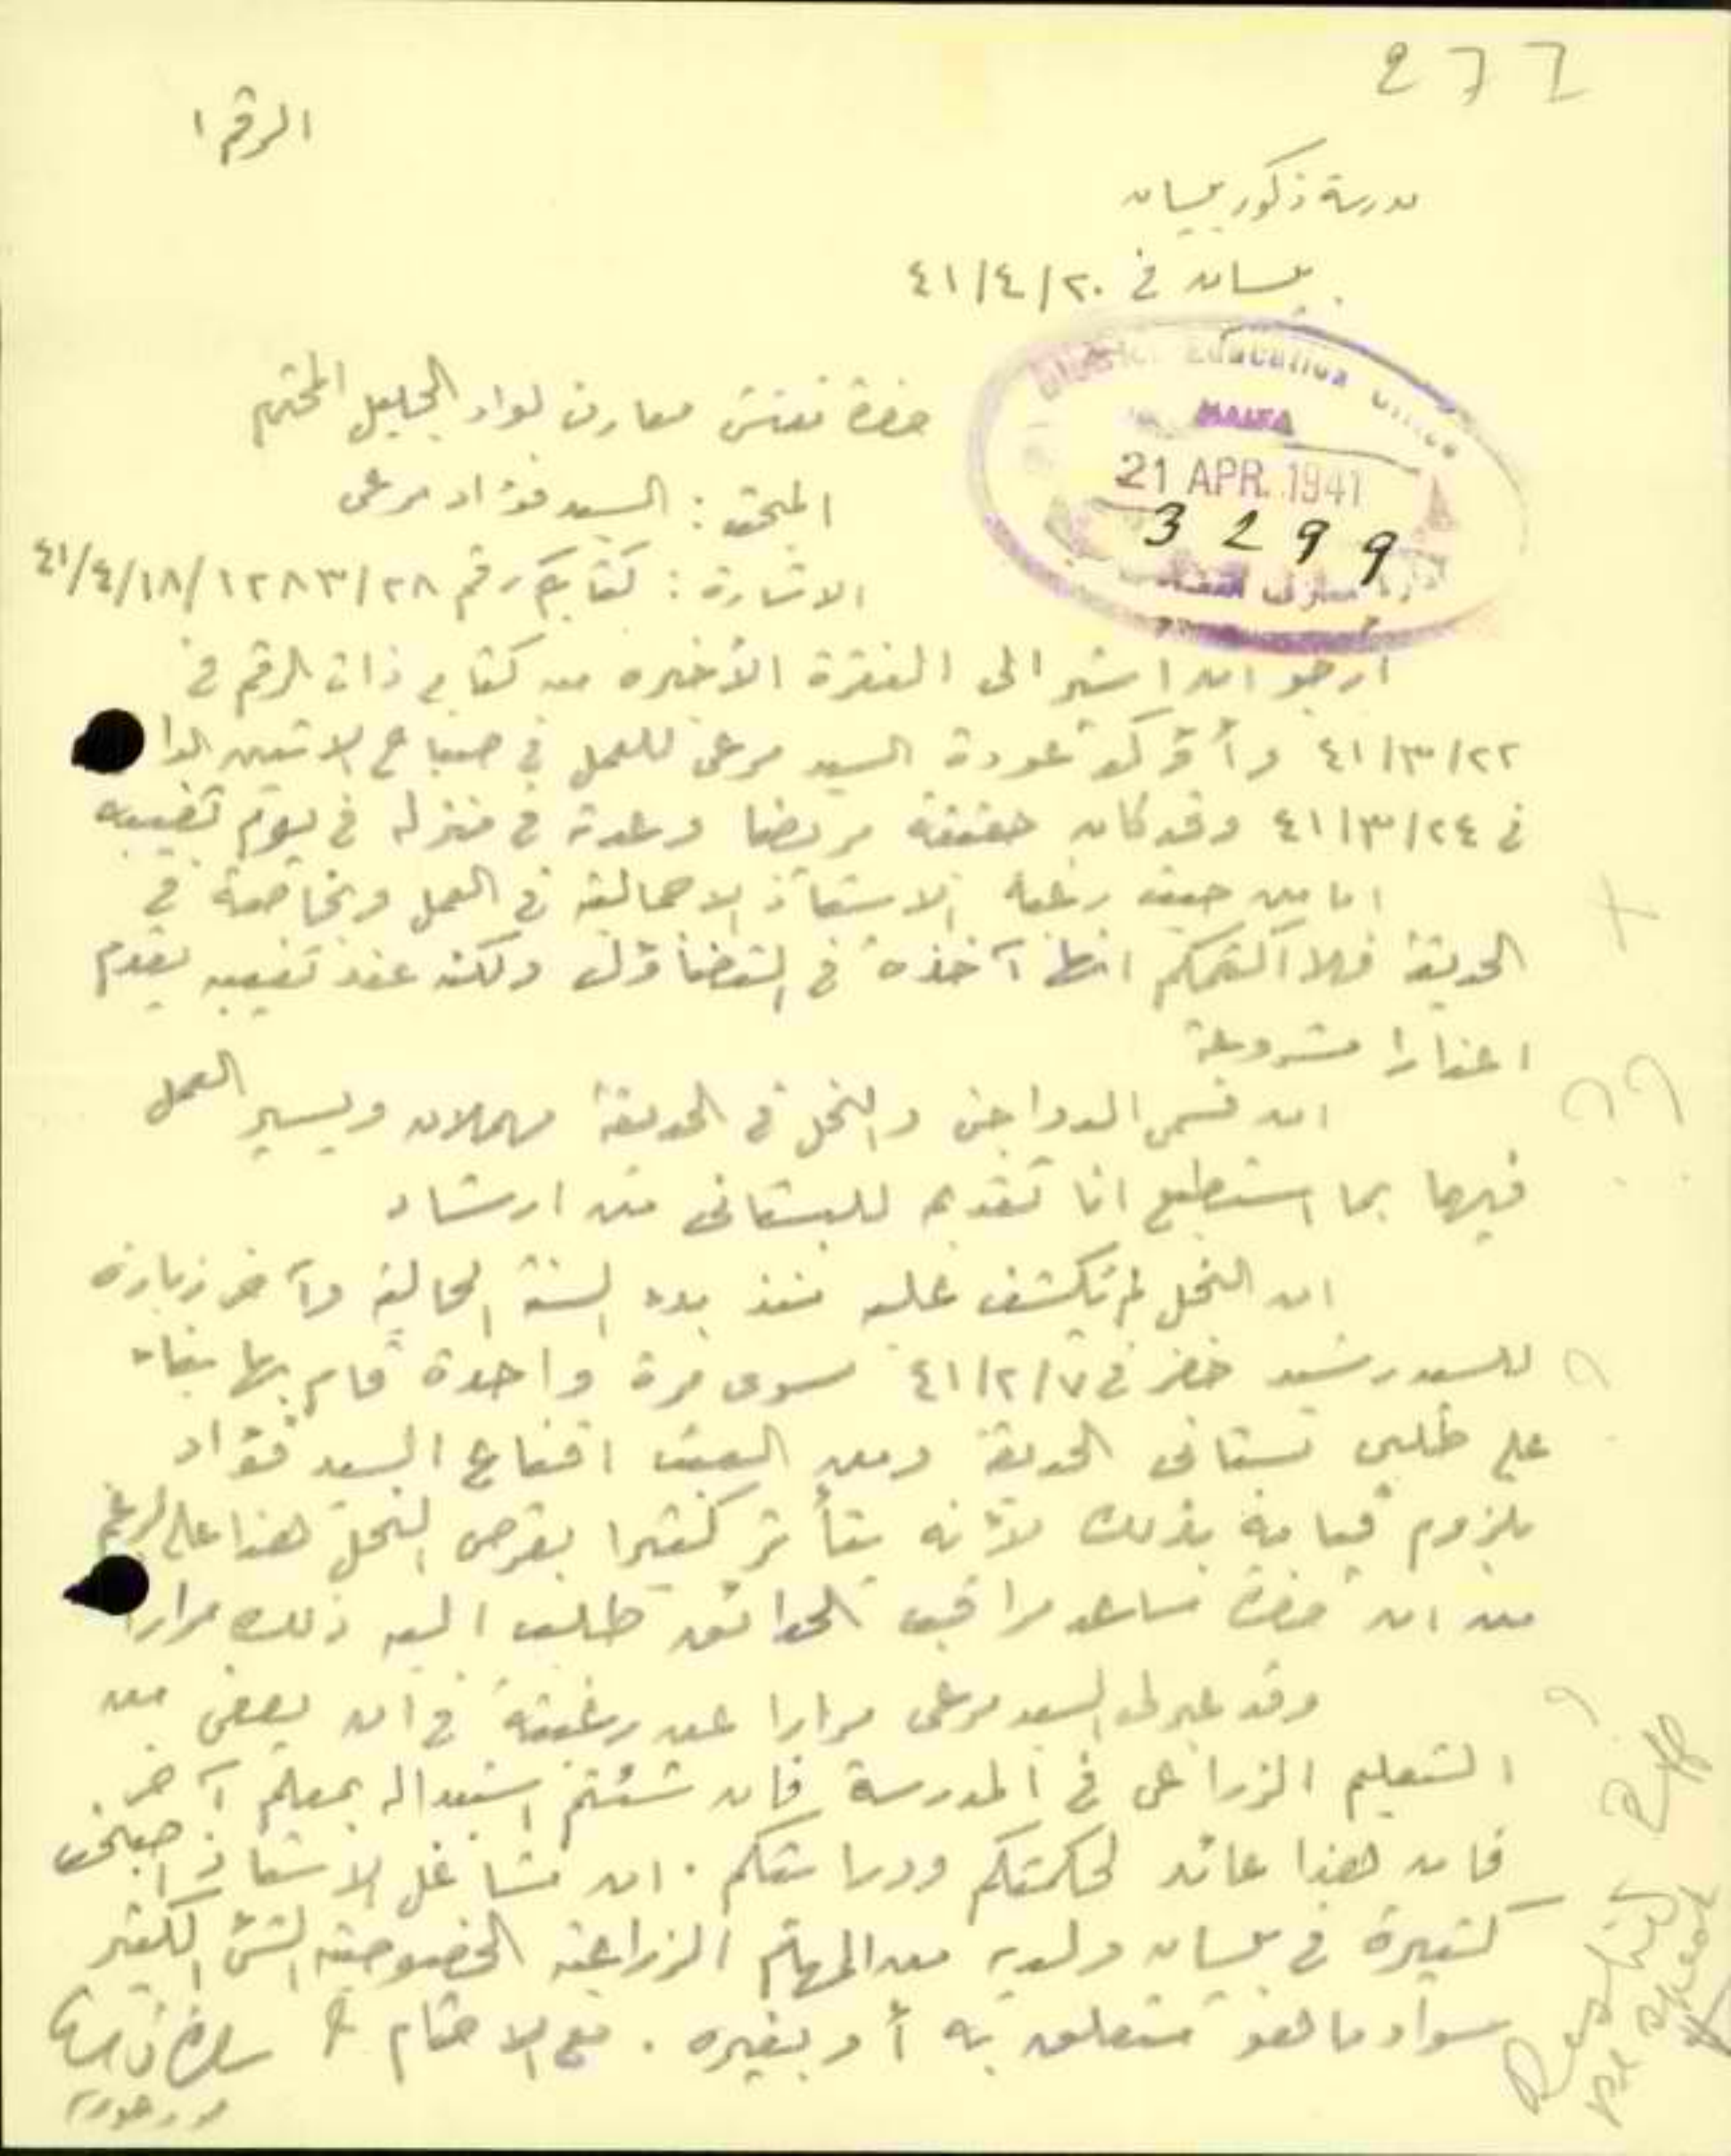 277
الرقم ١
مدرسة ذكور بيسان
بيسان في ٢٠/٤/٤١
District Education Office
HAIFA
21 APR. 1941
3299
حضرة مفتش معارف لواء الجليل المحترم
المبحث : السيد فؤاد مرعي
الاشارة : كتابكم رقم ١٢٨٣/٢٨/ ٤١/٤/١٨
ارجو ان اشير الى الفقرة الأخيره من كتابي ذات الرقم في
٤١/٣/٢٢ وأؤكد عودة السيد مرعي للعمل في صباح الاثنين
في ٤١/٣/٢٤ وقد كان حقيقة مريضا وعدته في منزله في يوم تغيبه
اما من حيث رغبة الاستاذ الاجمالية في العمل وبخاصة في
الحديقة فلا اكتمكم انها آخذة في التضاؤل ولكنه عند تغيبه يقدم
اعذارا مشروعة
ان قسمي الدواجن والنحل في الحديقة مهملان ويسير العمل
فيهما بما استطيع انا تقديمه للبستاني من ارشاد
ان النحل لم تكشف عليه منذ بدء السنة الحالية وآخر زيارة
للسيد رشيد خضر في ٤١/٢/٧ سوى مرة واحدة قام بها بناء
على طلبي بستاني الحديقة ومن العبث اقناع السيد فؤاد
بلزوم قيامه بذلك لأنه يتأثر كثيرا بقرص النحل هذا على الرغم
من ان حضرة مساعد مراقب الحدائق طلب اليه ذلك مرارا
وقد عبر لي السيد مرعي مرارا عن رغبته في ان يعفى من
التعليم الزراعي في المدرسة فان شئتم استبداله بمعلم آخر
فان هذا عائد لحكمتكم ودرايتكم . ان مشاغل الاستاذ اصبحت
كثيرة في بيسان ولديه من المهام الزراعية الخصوصية الشئ الكثير
سواء ما هو متعلق به أو بغيره . مع الاحترام